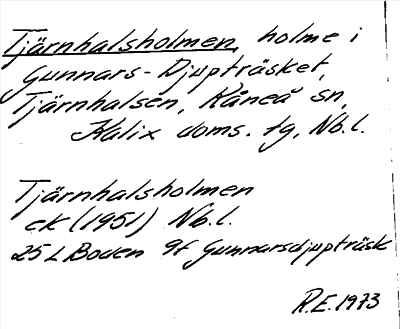 Tjärnhalsholmen, holme i
Gunnars-Djupträsket,
Tjärnhalsen, Råneå sn,
Kalix doms. tg, Nb.l.
Tjärnhalsholmen
ek (1951) Nb.l.
25 L Boden 9f Gunnarsdjupträsk
R.E. 1973